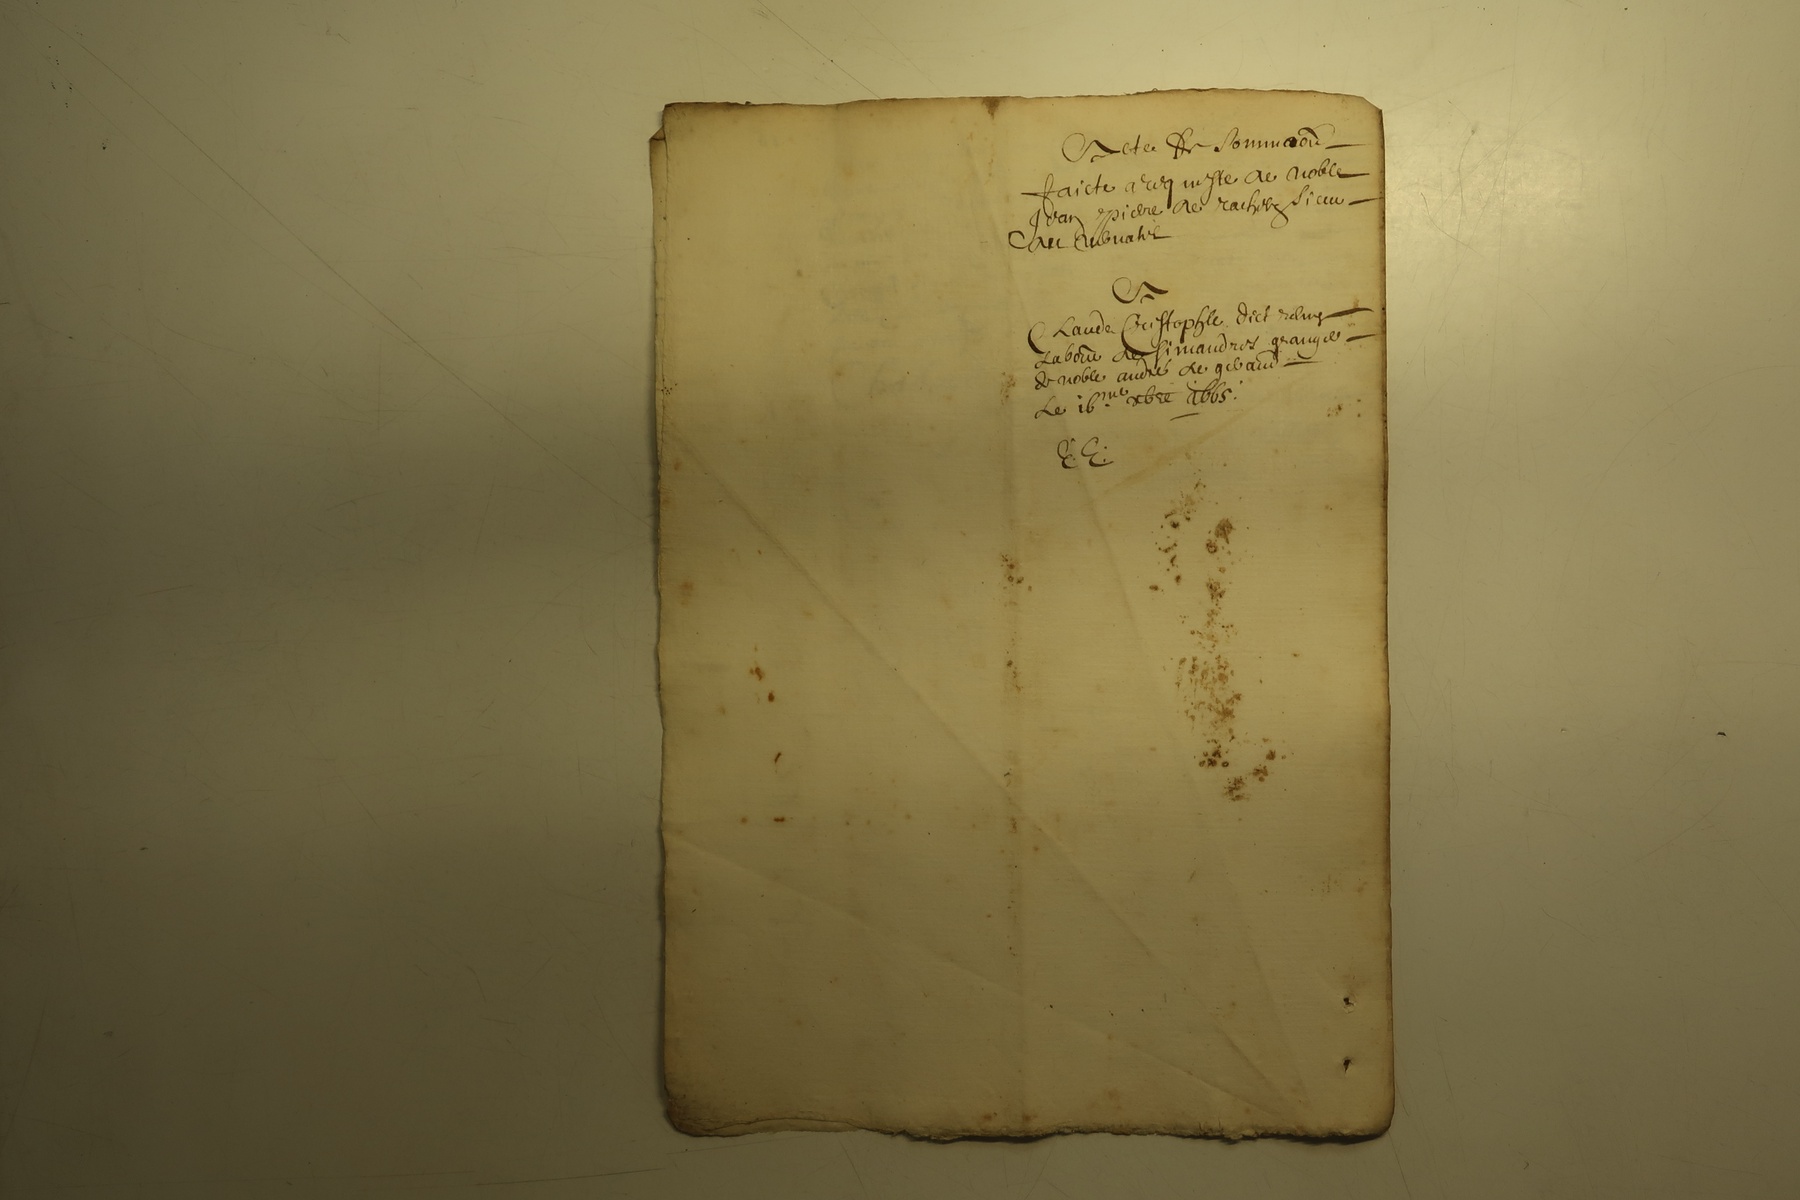 Acte de Sommaon
faicte a requiste de noble
Jean piere de rachez sieur
du
A
Claude Cristophle dict
labour de Simandres grangier
de noble andre de
Le 16me xbre 1665.
EE.